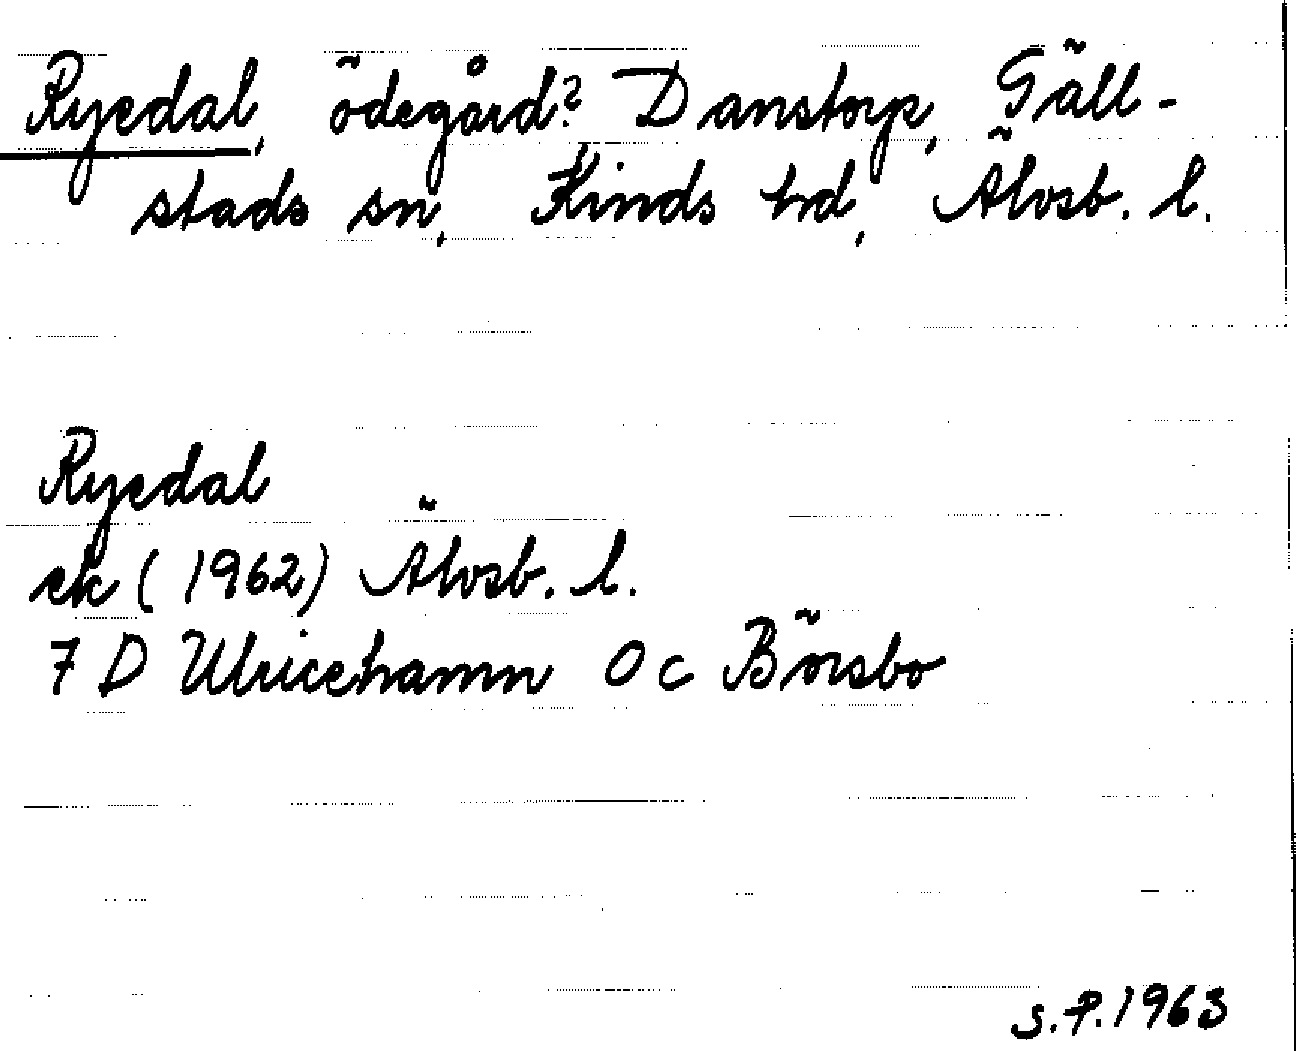 Ryedal, ödegård? Danstorp, Gäll-
stads sn, Kinds hd, Älvsb. l.
Ryedal
ek (1962) Älvsb. l.
7 D Ulricehamn 0 c Börsbo
S.P. 1963